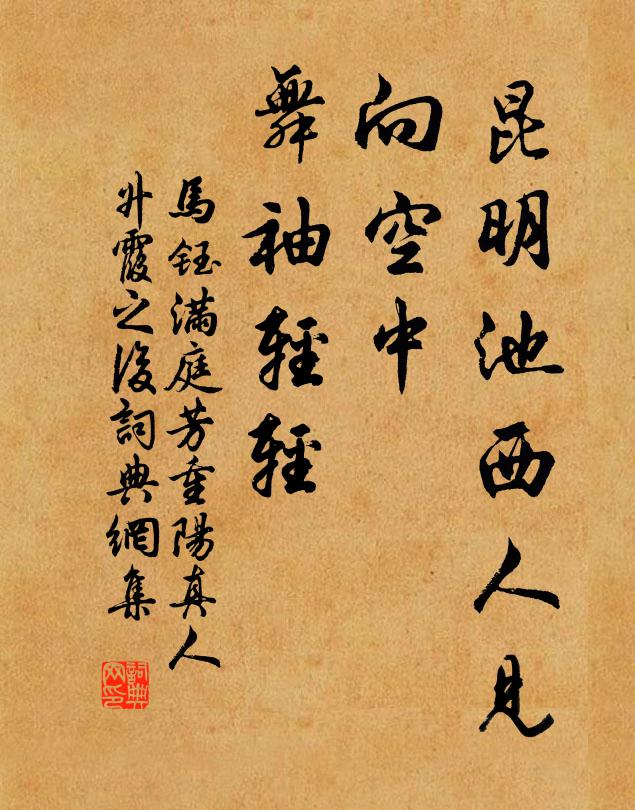 昆明池西人見
向空中
舞袖輕輕
馬鈺滿庭芳重陽真人
升霞之後詞典網集
詞典
网印